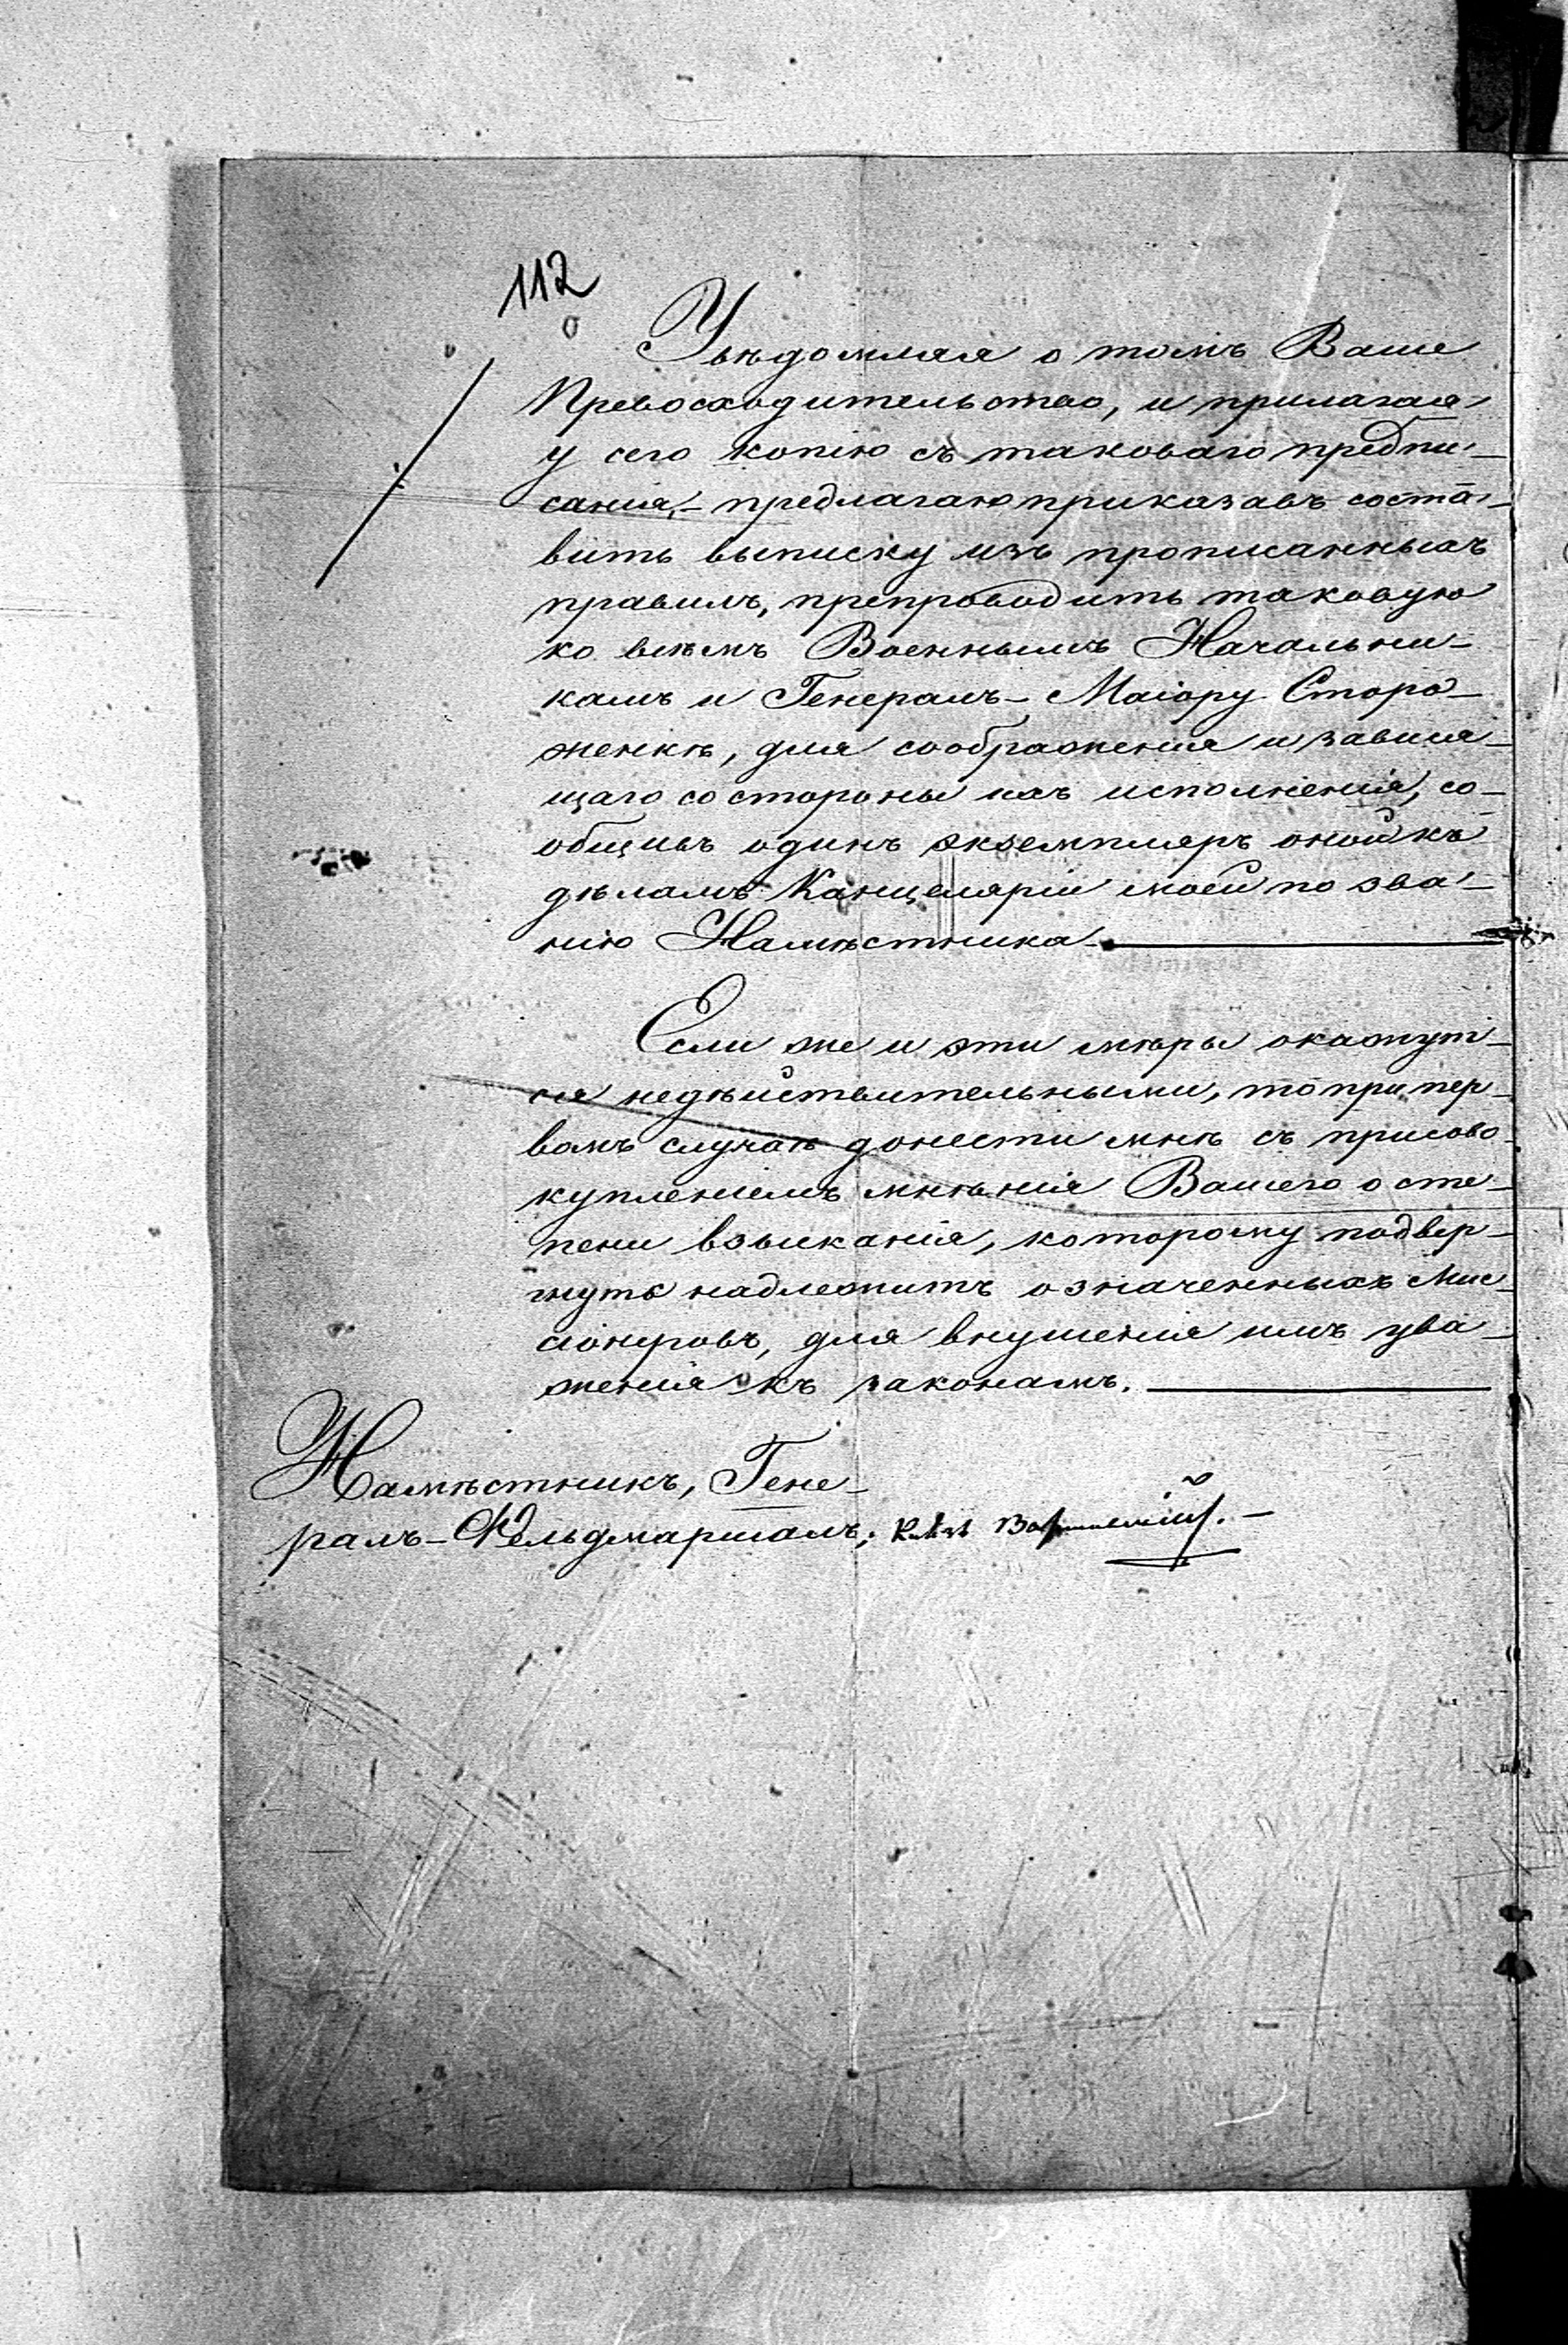 112
Увѣдомляя о томъ Ваше
Превосходительство, и прилагая
у сего копію съ таковаго предпи-
санія,- предлагаю приказавъ соста-
вить выписку изъ прописанныхъ
правилъ, препроводить таковую
ко всѣмъ Военнымъ Начальни-
камъ и Генералъ-Маіору Сторо-
женкѣ, для соображенія и завися-
щаго со стороны ихъ исполненія, со-
общивъ одинъ экземпляръ оной къ
дѣламъ Канцеляріи моей по зва-
нію Намѣстника
Если же и эти мѣры окажут-
ся недѣйствительными, то при пер-
вомъ случаѣ донести мнѣ съ присово-
купленіемъ мнѣнія Вашего о сте-
пени взысканія, которому подвер-
гнуть надлежитъ означенныхъ Мис-
сіонеровъ, для внушенія имъ ува-
женія къ законамъ.
Намѣстникъ, Гене-
ралъ-Фельдмаршалъ, Князь Варшавскій.